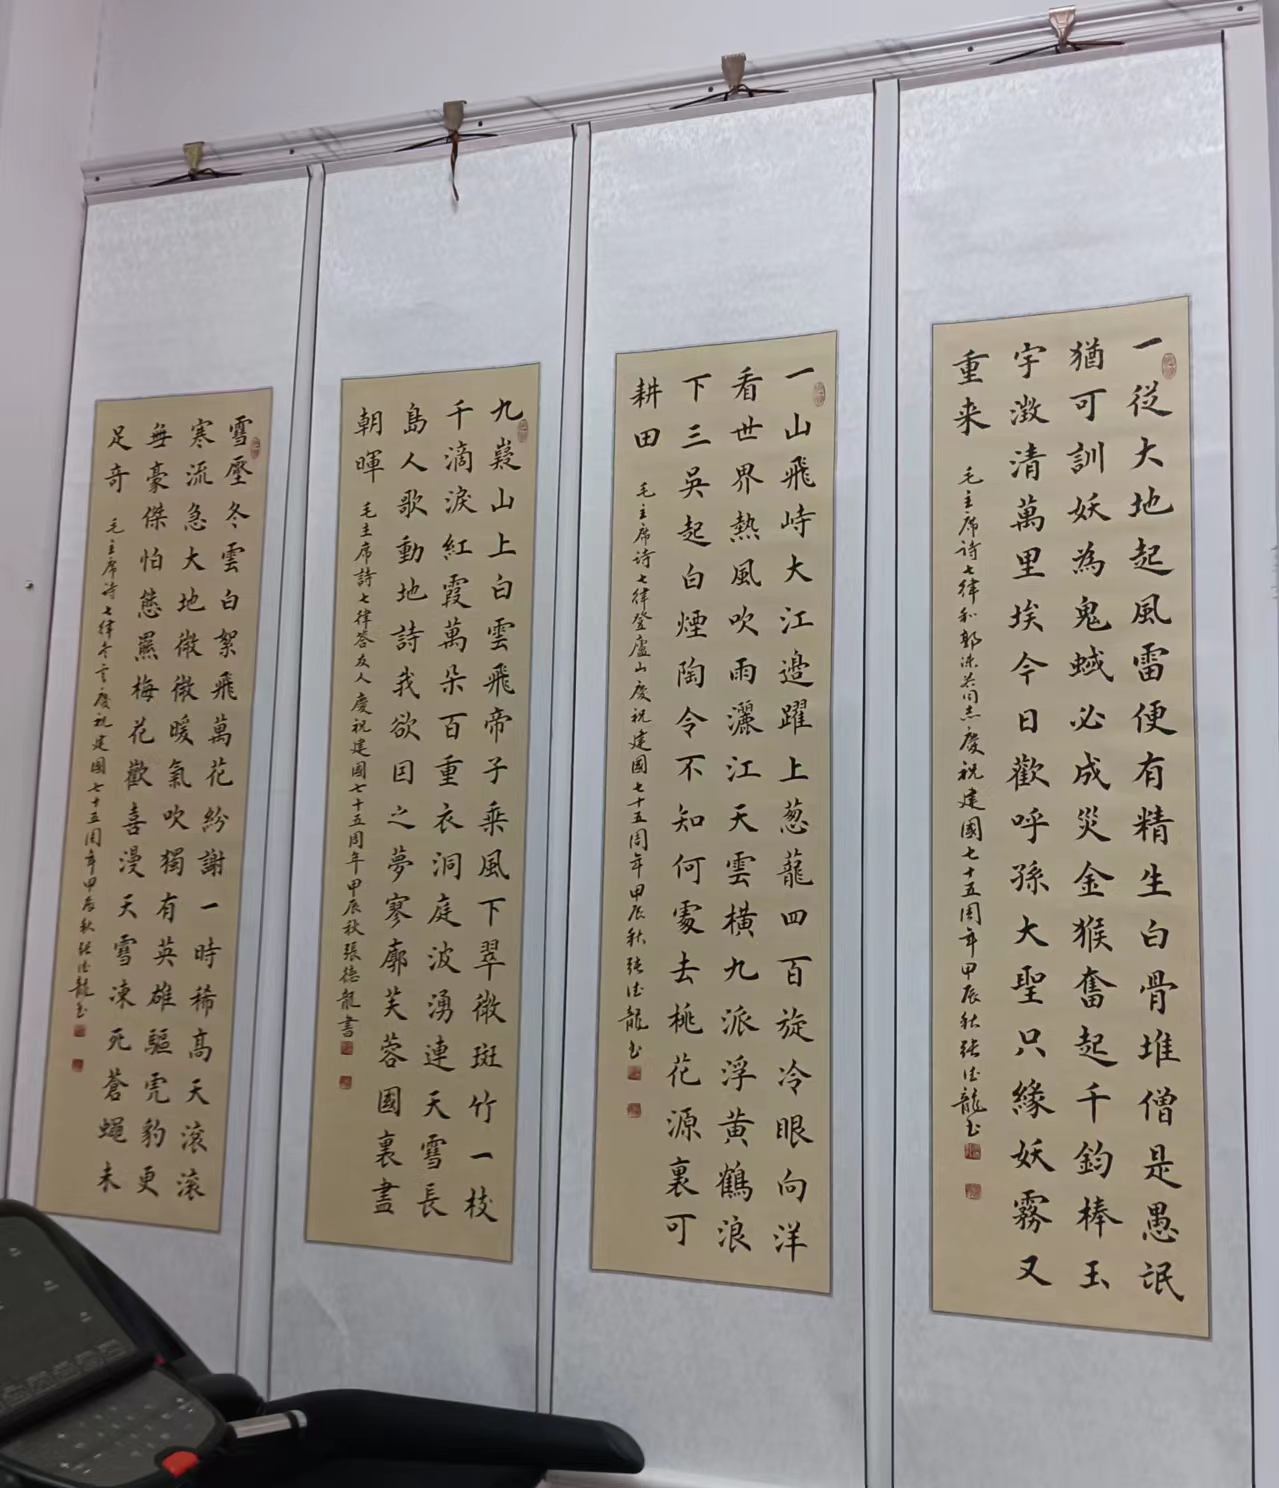 一從大地起風雷便有精生白骨堆僧是愚氓
猶可訓妖為鬼蜮必成災金猴奮起千鈞棒玉
宇澂清萬里埃今日歡呼孫大聖只緣妖霧又
重来
毛主席诗七律和郭沫若同志慶祝建國七十五周年甲辰秋張德龍書
一山飛峙大江邊躍上葱蘢四百旋冷眼向洋
看世界熱風吹雨灑江天雲橫九派浮黃鶴浪
下三吳起白煙陶令不知何處去桃花源裏可
耕田
毛主席诗七律登廬山慶祝建國七十五周年甲辰秋張德龍書
九嶷山上白雲飛帝子乘風下翠微斑竹一枝
千滴淚紅霞萬朵百重衣洞庭波湧連天雪長
島人歌動地詩我欲因之夢寥廓芙蓉國裏盡
朝暉
毛主席詩七律答友人慶祝建國七十五周年甲辰秋張德龍書
雪壓冬雲白絮飛萬花紛謝一時稀高天滾滾
寒流急大地微微暖氣吹獨有英雄驅虎豹更
無豪傑怕熊羆梅花歡喜漫天雪凍死蒼蠅未
足奇
毛主席诗七律冬雲慶祝建國七十五周年甲辰秋張德龍書